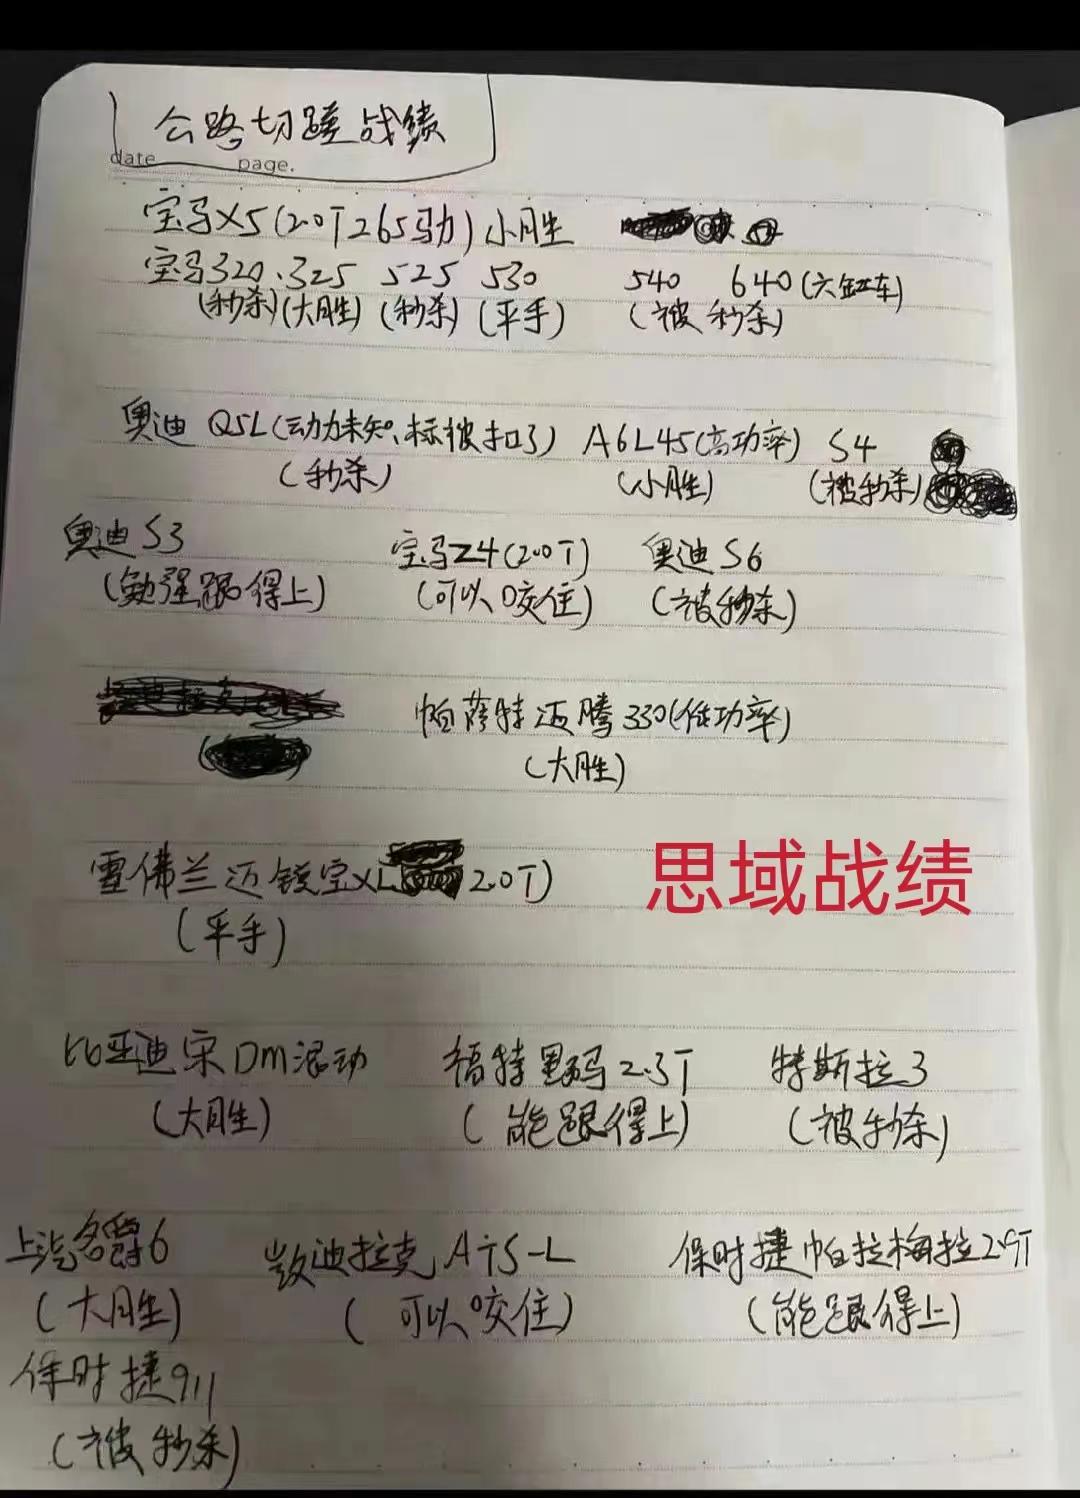 公路切磋战绩
date page.
宝马X5(2.0T 265马力) 小胜
宝马320、325 525 530 540 640(六缸车)
(秒杀)(大胜)(秒杀)(平手) (被秒杀)
奥迪 Q5L(动力未知、标被扣了) A6L45(高功率) S4
(秒杀) (小胜) (被秒杀)
奥迪S3 宝马Z4(2.0T) 奥迪S6
(勉强跟得上) (可以咬住) (被秒杀)
帕萨特迈腾330(低功率)
(大胜)
雪佛兰迈锐宝XL 2.0T)
(平手)
思域战绩
比亚迪宋Dm混动 福特野马2.3T 特斯拉3
(大胜) (能跟得上) (被秒杀)
上汽名爵6 凯迪拉克ATS-L 保时捷帕拉梅拉2.9T
(大胜) (可以咬住) (能跟得上)
保时捷911
(被秒杀)